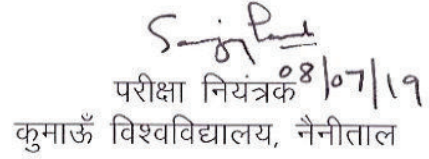 08/07/19
परीक्षा नियंत्रक
कुमाऊँ विश्वविद्यालय, नैनीताल